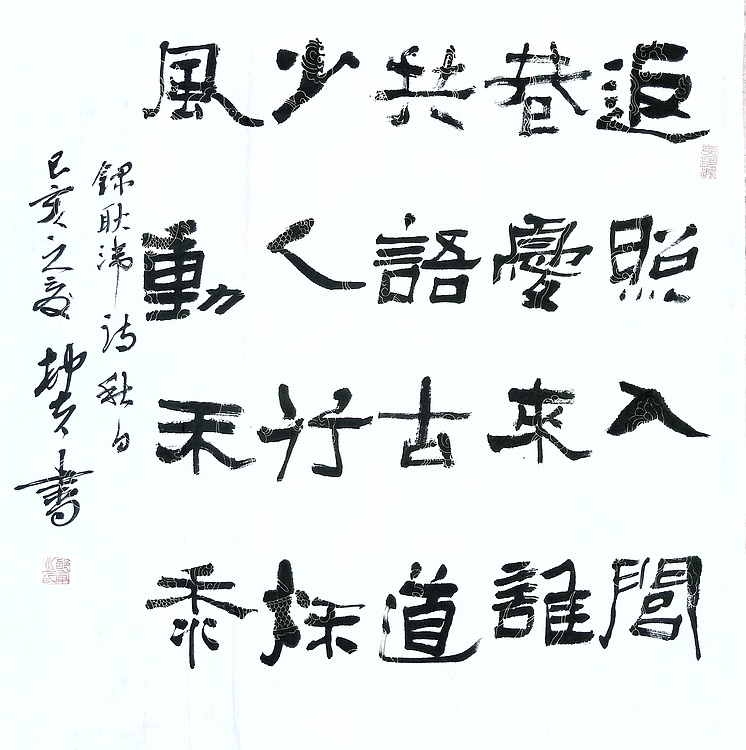 返照入閭
巷憂來誰
共語古道
少人行秋
風動禾黍
錄耿湋詩秋日
己亥之夏 書